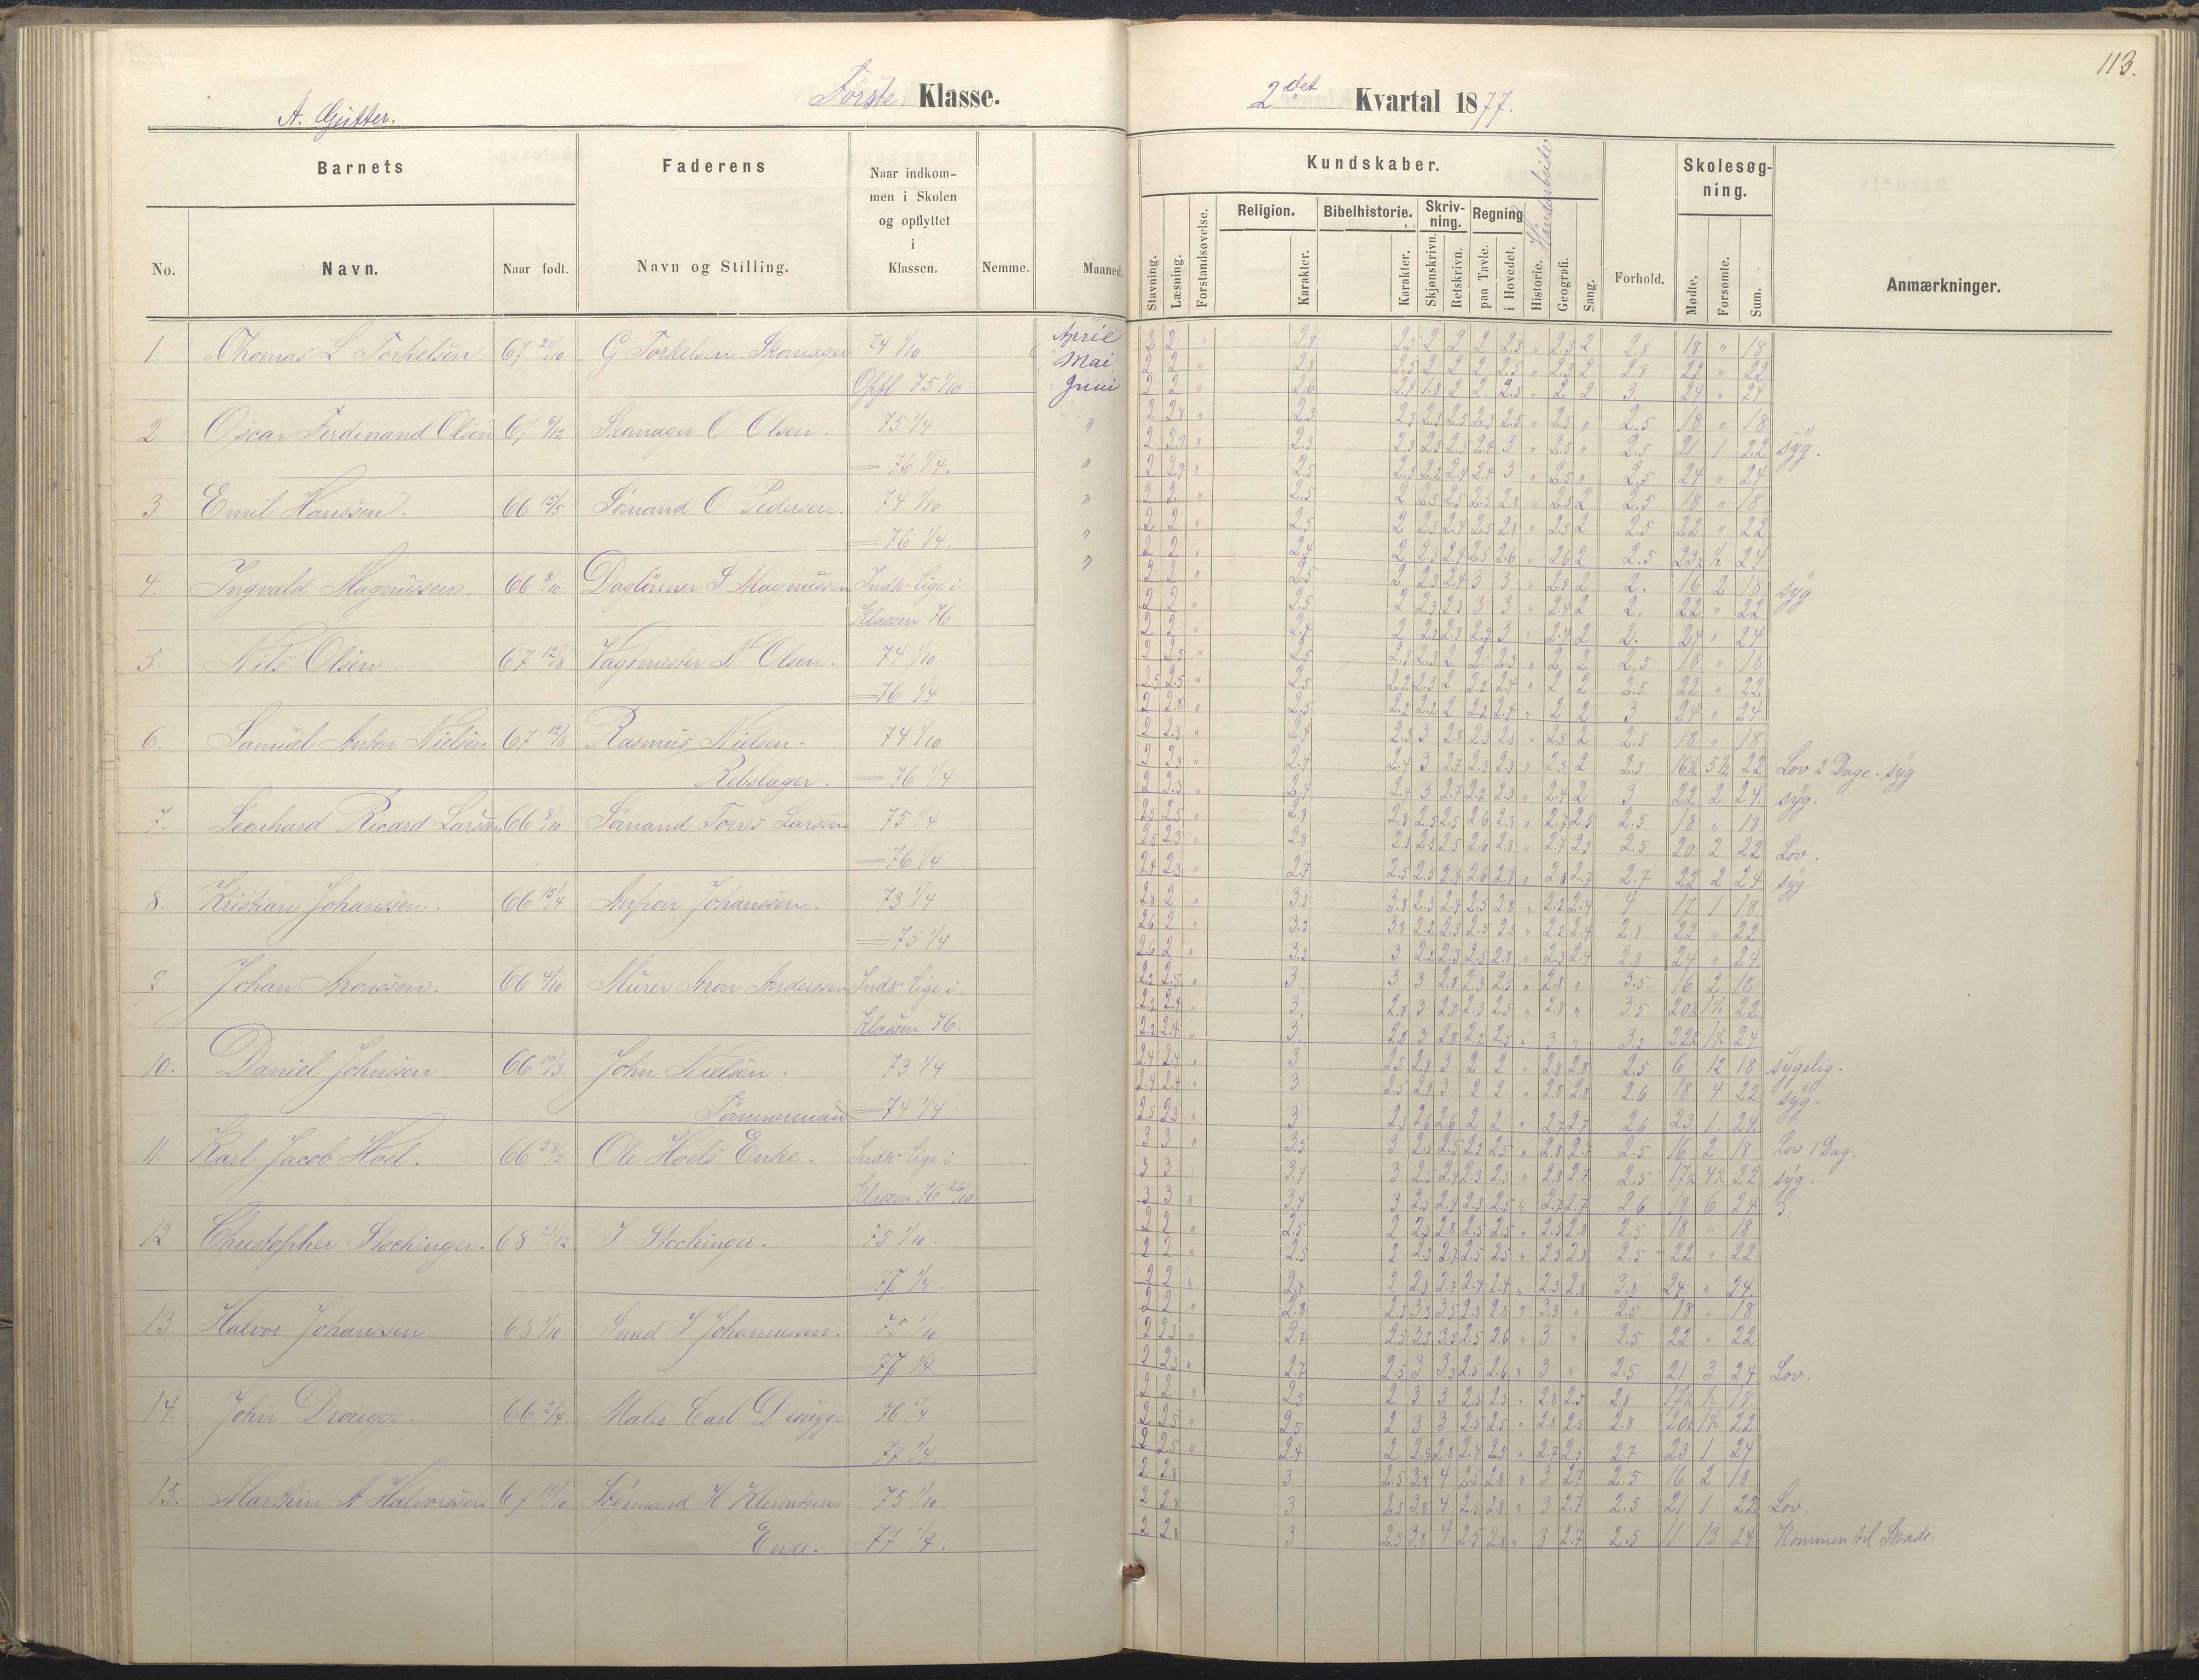 113.
Første Klasse.
2det Kvartal 1877.
A. Gutter.
Barnets
Faderens
Naar indkom-
men i Skolen
og opflyttet
i
Klassen.
No.
Navn.
Naar født.
Navn og Stilling.
Nemme.
Maaned.
Kundskaber.
Skolesøg-
ning.
Religion.
Bibelhistorie.
Skriv-
ning.
Regning
Haandarbeide
Stavning.
Læsning.
Forstandsøvelse.
Karakter.
Karakter.
Skjønskrivn.
Retskrivn.
paa Tavle.
i Hovedet.
Historie.
Geografi.
Sang.
Forhold.
Mødte.
Forsømte.
Sum.
Anmærkninger.
1. Thomas L Torkelsen. 67 28/10 G Torkelsen. Skomager 74 1/10 April
2 2 " 2.8 2.5 2 2 2 2.3 " 2.3 2 2.8 18 " 18
Mai 2 2 " 2.8 2.5 2 2 2 2.5 " 2.3 2 2.8 22 " 22
Opfl 75 1/10 Juni 2 2 " 2.6 2.4 1.8 2 2. 2.5 " 2 2 3. 24 " 24
2 Oscar Ferdinand Olsen 67 Skomager O Olsen. 75 1/4 "
2 2.8 " 2.3 2.3 2.3 2.5 2.3 2.5 " 2.5 " 2.5 18 " 18
2 2.9 " 2.3 2.3 2.3 2.5 2.4 3 " 2.5 " 2.5 21 1 22 syg.
= 76 1/4. " 2 2.9 " 2.5 2.3 2.2 2.4 2.4 3 " 2.5 " 2.5 24 " 24
3. Emil Hanssen. 66 15/5 Sømand O Pedersen. 74 1/10 "
2 2 " 2.5 2 2.5 2.5 2.5 2.8 " 2.5 2 2.5 18 " 18
= 76 1/4. " 2 2 " 2.5 2 2.3 2.4 2.5 2.8 " 2.5 2 2.5 22 " 22
" 2 2 " 2.4 2 2.3 2.4 2.5 2.6 " 2.6 2 2.5 23½ ½ 24
4. Ingvald Magnussen. 66 8/10 Daglønner S Magnussen Indk. lige i
2 2 2.5 2 2.3 2.4 3 3 " 2.5 2 2. 16 2 18 syg.
Klassen 76
2 2 " 2.5 2 2.3 2.3 3 3 " 2.4 2 2. 22 " 22
2 2 " 2.4 2 2.2 2.3 2.9 3 " 2.4 2 2. 24 " 24
5. Nils Olsen. 67 12/8 Vagtmester N Olsen. 74 1/10
2 2.5 " 2.5 2.3 2.3 2 2. 2.3 " 2 2 2.5 18 " 18
= 76 1/4
2.5 2.5 " 2.5 2.2 2.3 2 2.2 2.4 " 2 2 2.5 22 " 22
2 2.3 " 2.5 2.2 2.2 2 2.2 2.4 " 2 2 3 24 " 24.
6. Samuel Anton Nielsen 67 12/8 Rasmus Nielsen. 74 1/10
2 2.3 " 2.4 2.3 3 2.8 2.3 2.3 " 2.5 2 2.5 18 " 18
Rebslager. = 76 1/4
2 2.3 " 2.4 2.4 3 2.7 2.3 2.3 " 2.3 2 2.5 16½ 5½ 22 Lov 2 Dage. syg
2 2.3 " 2.4 2.4 3 2.7 2.2 2.3 " 2.4 2 3 22 2 24. syg.
7. Leonhard Ricard Larsen 66 8/10 Sømand Torres Larssen 75 1/4
2.5 2.5 " 2.8 2.3 2.5 2.5 2.6 2.8 " 2.7 2.5 2.5 18 " 18
= 76 1/4
2.5 2.3 2.8 2.3 2.5 2.5 2.6 2.8 " 2.7 2.5 2.5 20 2 22 Lov.
2.4 2.3 " 2.7 2.5 2.5 2.4 2.6 2.7 " 2.8 2.7 2.7 22 2 24 syg.
8. Kristian Johanssen. 66 15/4 Johanssen. 73 1/4
2.8 2 " 3.2 3.8 2.3 2.4 2.5 2.8 " 2.2 2.4 4 17 1 18
= 75 1/4
2.6 2 " 3.2 3.8 2.2 2.3 2.5 2.8 " 2.2 2.4 2.8 22 " 22
2.6 2 " 3.2 3 2.2 2.3 2.5 2.8 " 2.3 2.4 2.8 24 " 24
9. Johan Aronssen. 66 4/10. Murer Aron Anderssen Indk lige i
2.2 2.5 " 3. 3 3 2.8 2.3 2.5 " 2.8 " 3.5 16 2 18
Klassen 76.
2.2 2.4 " 3. 2.8 3 2.8 2.3 2.5 " 2.8 " 3.5 20½ 1½ 22
2.2 2.4 " 3. 2.8 3 2.8 2.2 2.5 " 3 " 3.2 22½ 1½ 24
10. Daniel Johnssen. 66 John Nielsen. 73 1/4
2.4 2.4 " 3 2.5 2.8 3 2 2 " 2.8 2.8 2.5 6 12 18 sygelig.
Tømmermand = 74 1/4
2.4 2.4 " 3 2.5 2.8 3 2 2 " 2.8 2.8 2.6 18 4 22 syg.
2.5 2.3 " 3 2.3 2.6 2.6 2 2 " 2.7 2.7 2.6 23 1. 24.
11. Karl Jacob Hoel. 66 28/2 Ole Hoels Enke. Indk. lige i
3 3 " 3.5 3 2.5 2.5 2.2 2.5 " 2.8 2.7 2.5 16 2 18 Lov 1 Dag.
Klassen 76 26/10
3 3 3.4 3 2.5 2.4 2.3 2.5 " 2.8 2.7 2.5 17½ 4½ 22 syg.
3 3 " 3.4 3 2.5 2.4 2.3 2.5 " 2.7 2.7 2.6 18 6 24
12. Christopher Stochinger. 68 21/12 I Stochinger. 75 1/10.
2 2 " 2.5 2 2.5 2.8 2.5 2.5 " 2.5 2.8 2.5 18 " 18
77 1/4.
2 2 " 2.5 2 2.3 2.7 2.5 2.5 " 2.3 2.8 2.5 22 " 22
2 2 " 2.4 2 2.3 2.7 2.4 2.4 " 2.3 2.8 3.8 24 " 24.
13. Halvor Johanssen. 68 1/10 Smed I Johannesen. 75 1/10
2 2 " 2.8 2.5 3.3 3.5 2.8 2.8 " 3.3 " 2.5 18 " 18
= 77 1/4.
2 2.3 " 2.7 2.5 3.5 3.5 2.5 2.6 " 3 " 2.5 22 " 22
2 2.3 " 2.7 2.5 3 3.3 2.5 2.6 " 3 " 2.5 21 3 24 Lov.
14. John Drougge. 66 2/4. Maler Carl Drougge 76 1/4
2 2 " 2.5 2 3 3 2.5 2.5 " 2.8 2.5 2.8 17½ ½ 18.
77 1/4.
2 2.5 " 2.5 2 3 3 2.5 2.5 " 2.8 2.5 2.8 20½ 1½ 22
2 2.5 " 2.4 2 2.9 2.8 2.4 2.5 " 2.7 2.5 2.7 23 1 24
15. Marthin A Halvorssen 67 15/10 Sømand H Klemetsens 75 1/10.
2 2.8 3 2.5 3.8 4 2.5 2.8 " 3 2.7 2.5 16 2 18
Enke. 77 1/4.
2 2.8 3. 2.5 3.8 4 2.5 2.8 " 3 2.7 2.5 21 1 22 Lov.
2 2.8 3 2.5 3.8 4 2.5 2.8 " 3 2.7 2.5 11 13 24 Kommen til Skade.